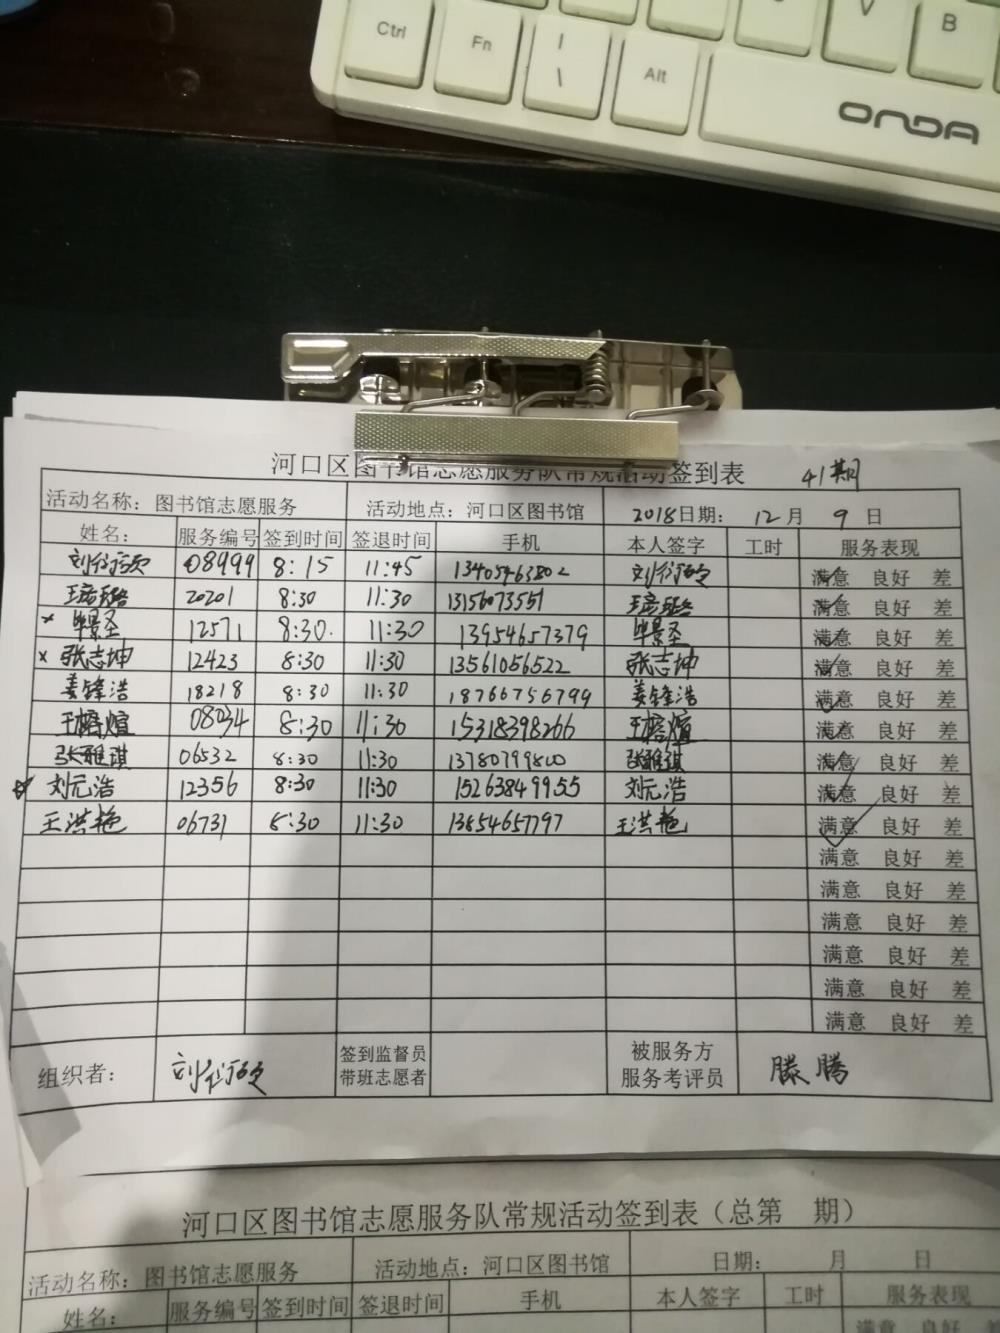 Ctrl Fn | \ Alt V B
ONDA
河口区图书馆志愿服务队常规活动签到表 41期
活动名称：图书馆志愿服务 活动地点：河口区图书馆 2018日期： 12月 9日
姓名： 服务编号 签到时间 签退时间 手机 本人签字 工时 服务表现
08999 8:15 11:45 13405463802 满意 良好 差
20201 8:30 11:30 13156073551 满意 良好 差
12571 8:30 11:30 13954657379 满意 良好 差
× 张志坤 12423 8:30 11:30 13561056522 张志坤 满意 良好 差
姜锋浩 18218 8:30 11:30 18766756799 姜锋浩 满意 良好 差
08034 8:30 11:30 15318398266 满意 良好 差
张雅琪 06532 8:30 11:30 13780799800 张雅琪 满意 良好 差
☆ 刘元浩 12356 8:30 11:30 15263849955 刘元浩 满意 良好 差
王洪艳 06731 8:30 11:30 13854657797 王洪艳 满意 良好 差
满意 良好 差
满意 良好 差
满意 良好 差
满意 良好 差
满意 良好 差
满意 良好 差
组织者： 签到监督员 被服务方 滕腾
带班志愿者 服务考评员
河口区图书馆志愿服务队常规活动签到表（总第 期）
活动名称：图书馆志愿服务 活动地点：河口区图书馆 日期： 月 日
姓名： 服务编号 签到时间 签退时间 手机 本人签字 工时 服务表现
满意 良好 差